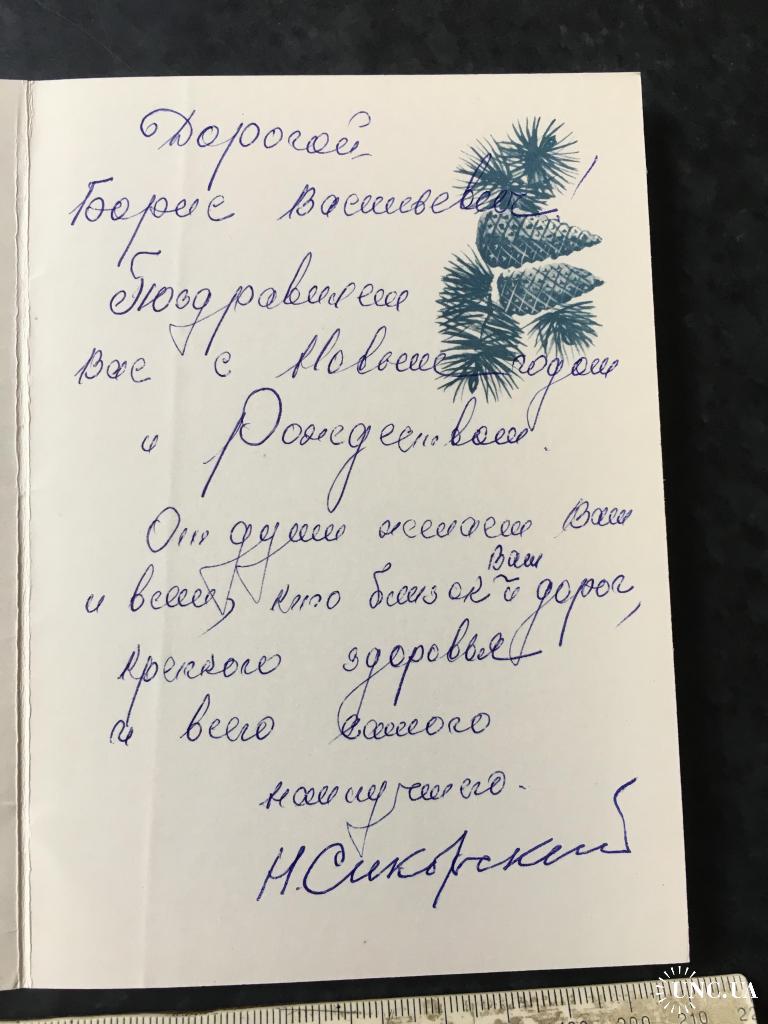 Дорогой
Борис Васильевич!
Поздравляем
Вас с Новым годом
и Рождеством.
От души желаем Вам
и всем, кто близок Вам и дорог,
крепкого здоровья
и всего самого
наилучшего.
Н. Сикорский
UNC.UA